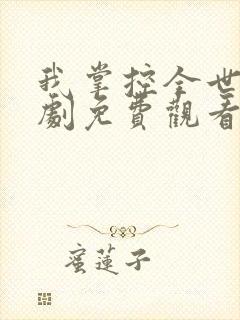 我掌控全世
劇免費觀看
蜜蓮子